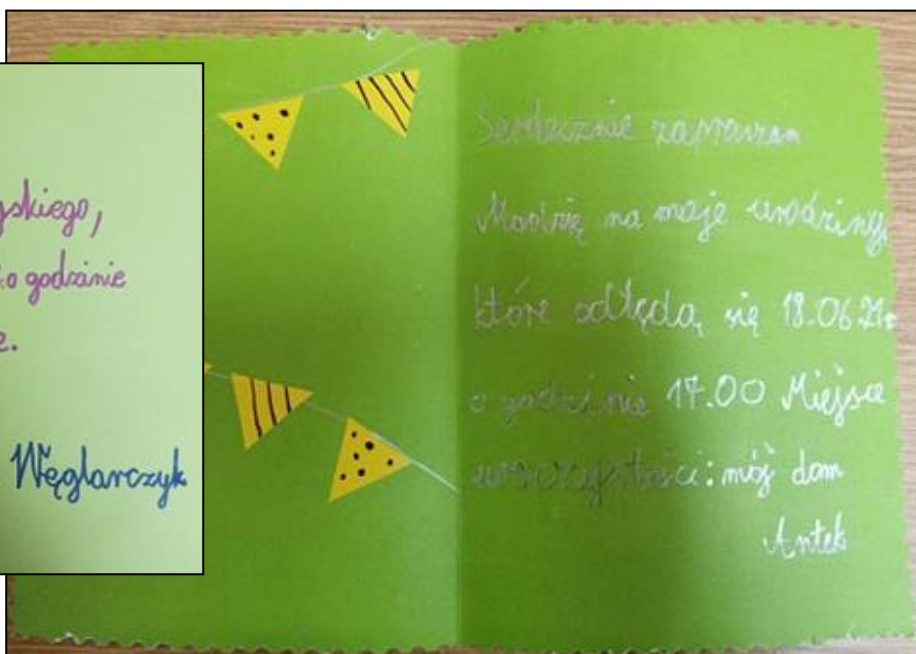 skiego,
o godzinie
e.
Węglarczyk
Serdecznie zapraszam
na moje urodziny,
które odbędą się 18.06.21r
o godzinie 17.00 Miejsce
uroczystości: mój dom
Antek